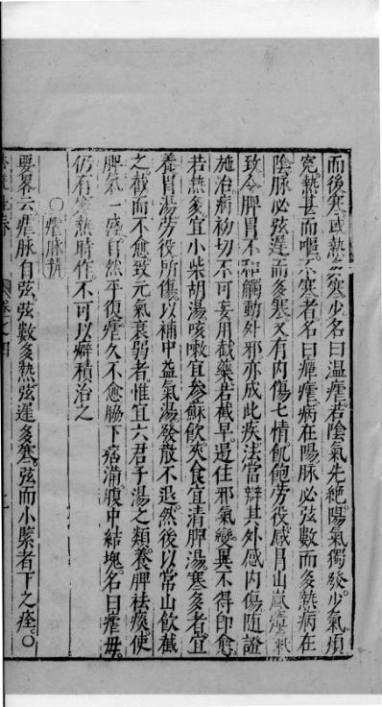 而後寒或熱多寒少名曰温瘧若陰氣先絶陽氣獨發少氣煩
寃熱甚而嘔不寒者名曰癉瘧病在陽脉必弦數而多熱病在
陰脉必弦遲而多寒又有内傷七情飢飽劳役感冒山嵐瘴氣
致令脾胃不和觸動外邪亦成此疾法當辯其外感内傷随證
施治病初切不可妄用截藥若截早遏住邪氣變異不得即愈
若熱多宜小柴胡湯咳嗽宜參蘇飲夾食宜清脾湯寒多者宜
養胃湯劳役所傷以補中益氣湯發散不退然後以常山飲截
之截而不愈致元氣衰弱者惟宜六君子湯之類養脾祛痰使
脾氣一盛自然平復瘧久不愈脇下痞滿腹中結塊名曰瘧母
仍有寒熱時作不可以癖積治之
○瘧脉
要畧云瘧脉自弦弦數多熱弦遲多寒弦而小緊者下之痊○